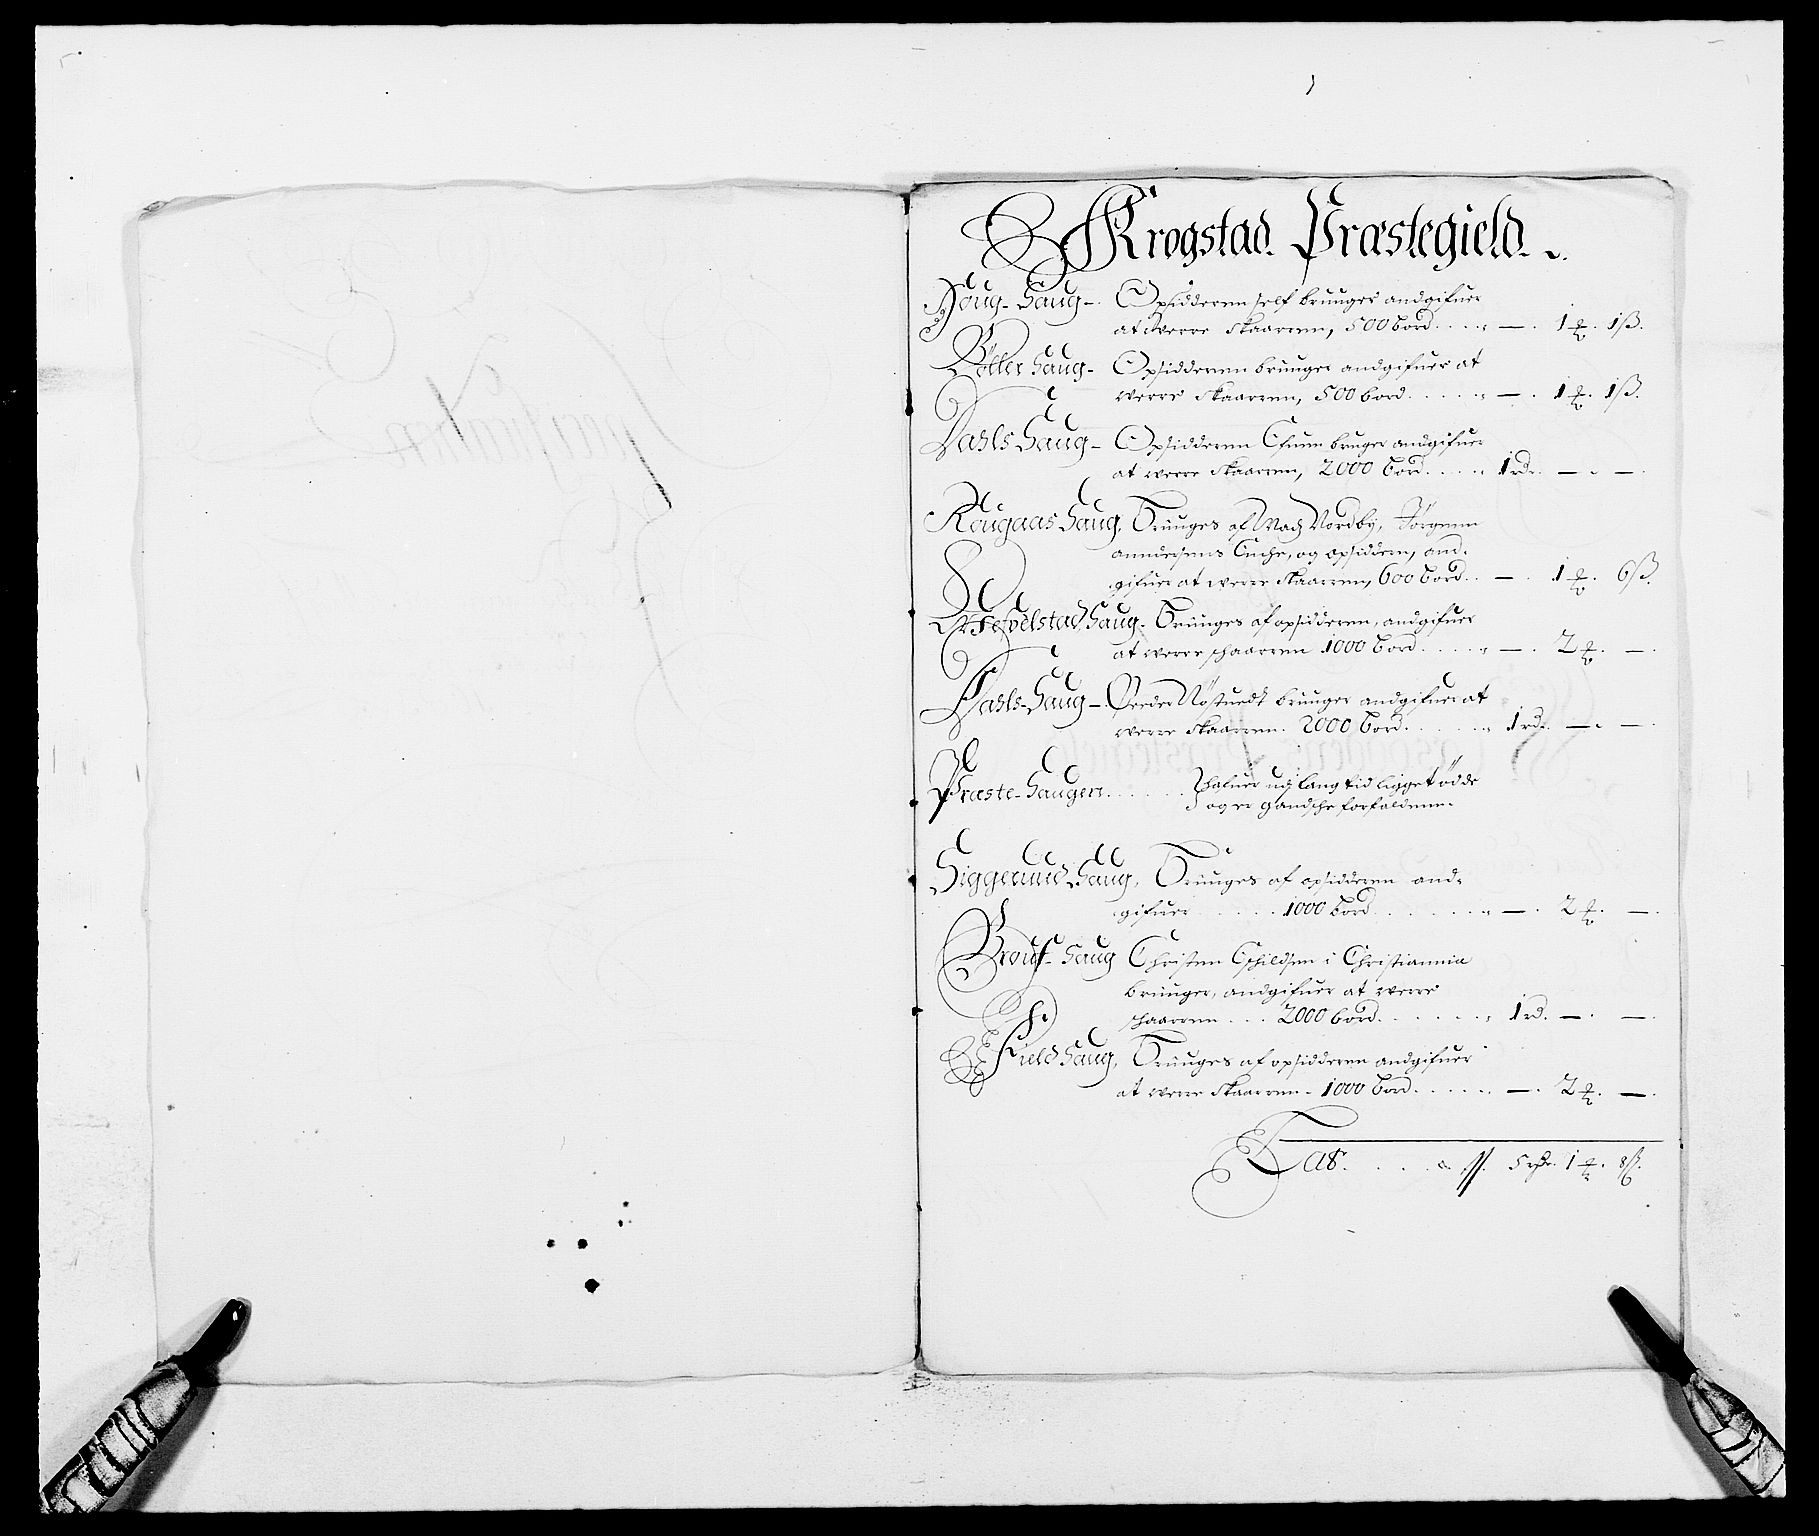 Krogstad Præstegield
Houg-Saug - Opsidderen self bruuger andgifuer
at were skaarren, 500 bord . . . . — . 1 ₰. 1 ß.
Bøller Saug - Opsidderen bruuger andgifuer at
werre skaarren, 500 bord . . . . . — . 1 ₰. 1 ß.
Dahls Saug - Opsidderen bruger andgifuer
at werre skaarren, 2000 bord . . . . 1 rd. — . — .
Rougaas Saug, Bruuges af Nordby, Jørgenn
anndersens Encke, og opsiddere, and-
gifuer at werre skaarren, 600 bord . . — . 1 ₰. 6 ß.
Saug - Bruuges af opsidderen, andgifuer
at werre schaarren 1000 bord . . . . . — . 2 ₰. — .
Dahls-Saug - Peeder bruuger andgifuer at
werre skaarren. 2000 bord . . . . . 1 rd. — . — .
Præste-Saugen . . . . . . hafuer udj lang tid ligget øde
og er gandsche forfaldenn.
Siggerund Saug, Bruuges af opsidderen and-
gifuer . . . . . 1000 bord . . . . . . — . 2 ₰. — .
Saug Christen i Christiannia
bruuger, andgifuer at werre
schaarren . . . 2000 bord . . . . . . 1 rd. — . — .
Field Saug, Bruuges af opsidderen andgifuer
at werre skaarren - 1000 bord . . . . . — . 2 ₰. — .
Lat. . . . . 5 rdr. 1 ₰. 8 ß.